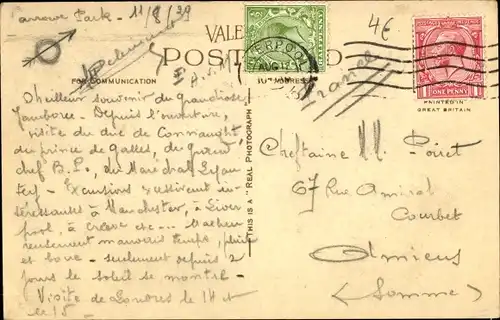 Arrowe Park - 11/8/29
4€
VALE
POST
FOR COMMUNICATION
ADDRESS
LIVERPOOL
AUG
France
ONE PENNY
PRINTED IN
GREAT BRITAIN
THIS IS A "REAL PHOTOGRAPH"
Meilleur souvenir du grandiose
Jamboree - Depuis l'ouverture,
visite du duc de Connaught
du prince de Galles, du
chef B.P., du Maréchal Lyau
tey - Excursions in
téressantes à Manchester, à Liver
pool, à etc... Malheu
reusement mauvais temps, pluie
et boue - seulement depuis 2
jours le soleil se montre.
Visite de Londres le 14 et
le 15
Cheftaine M. Poiret
67 Rue Amiral
Courbet
Amiens
(Somme)